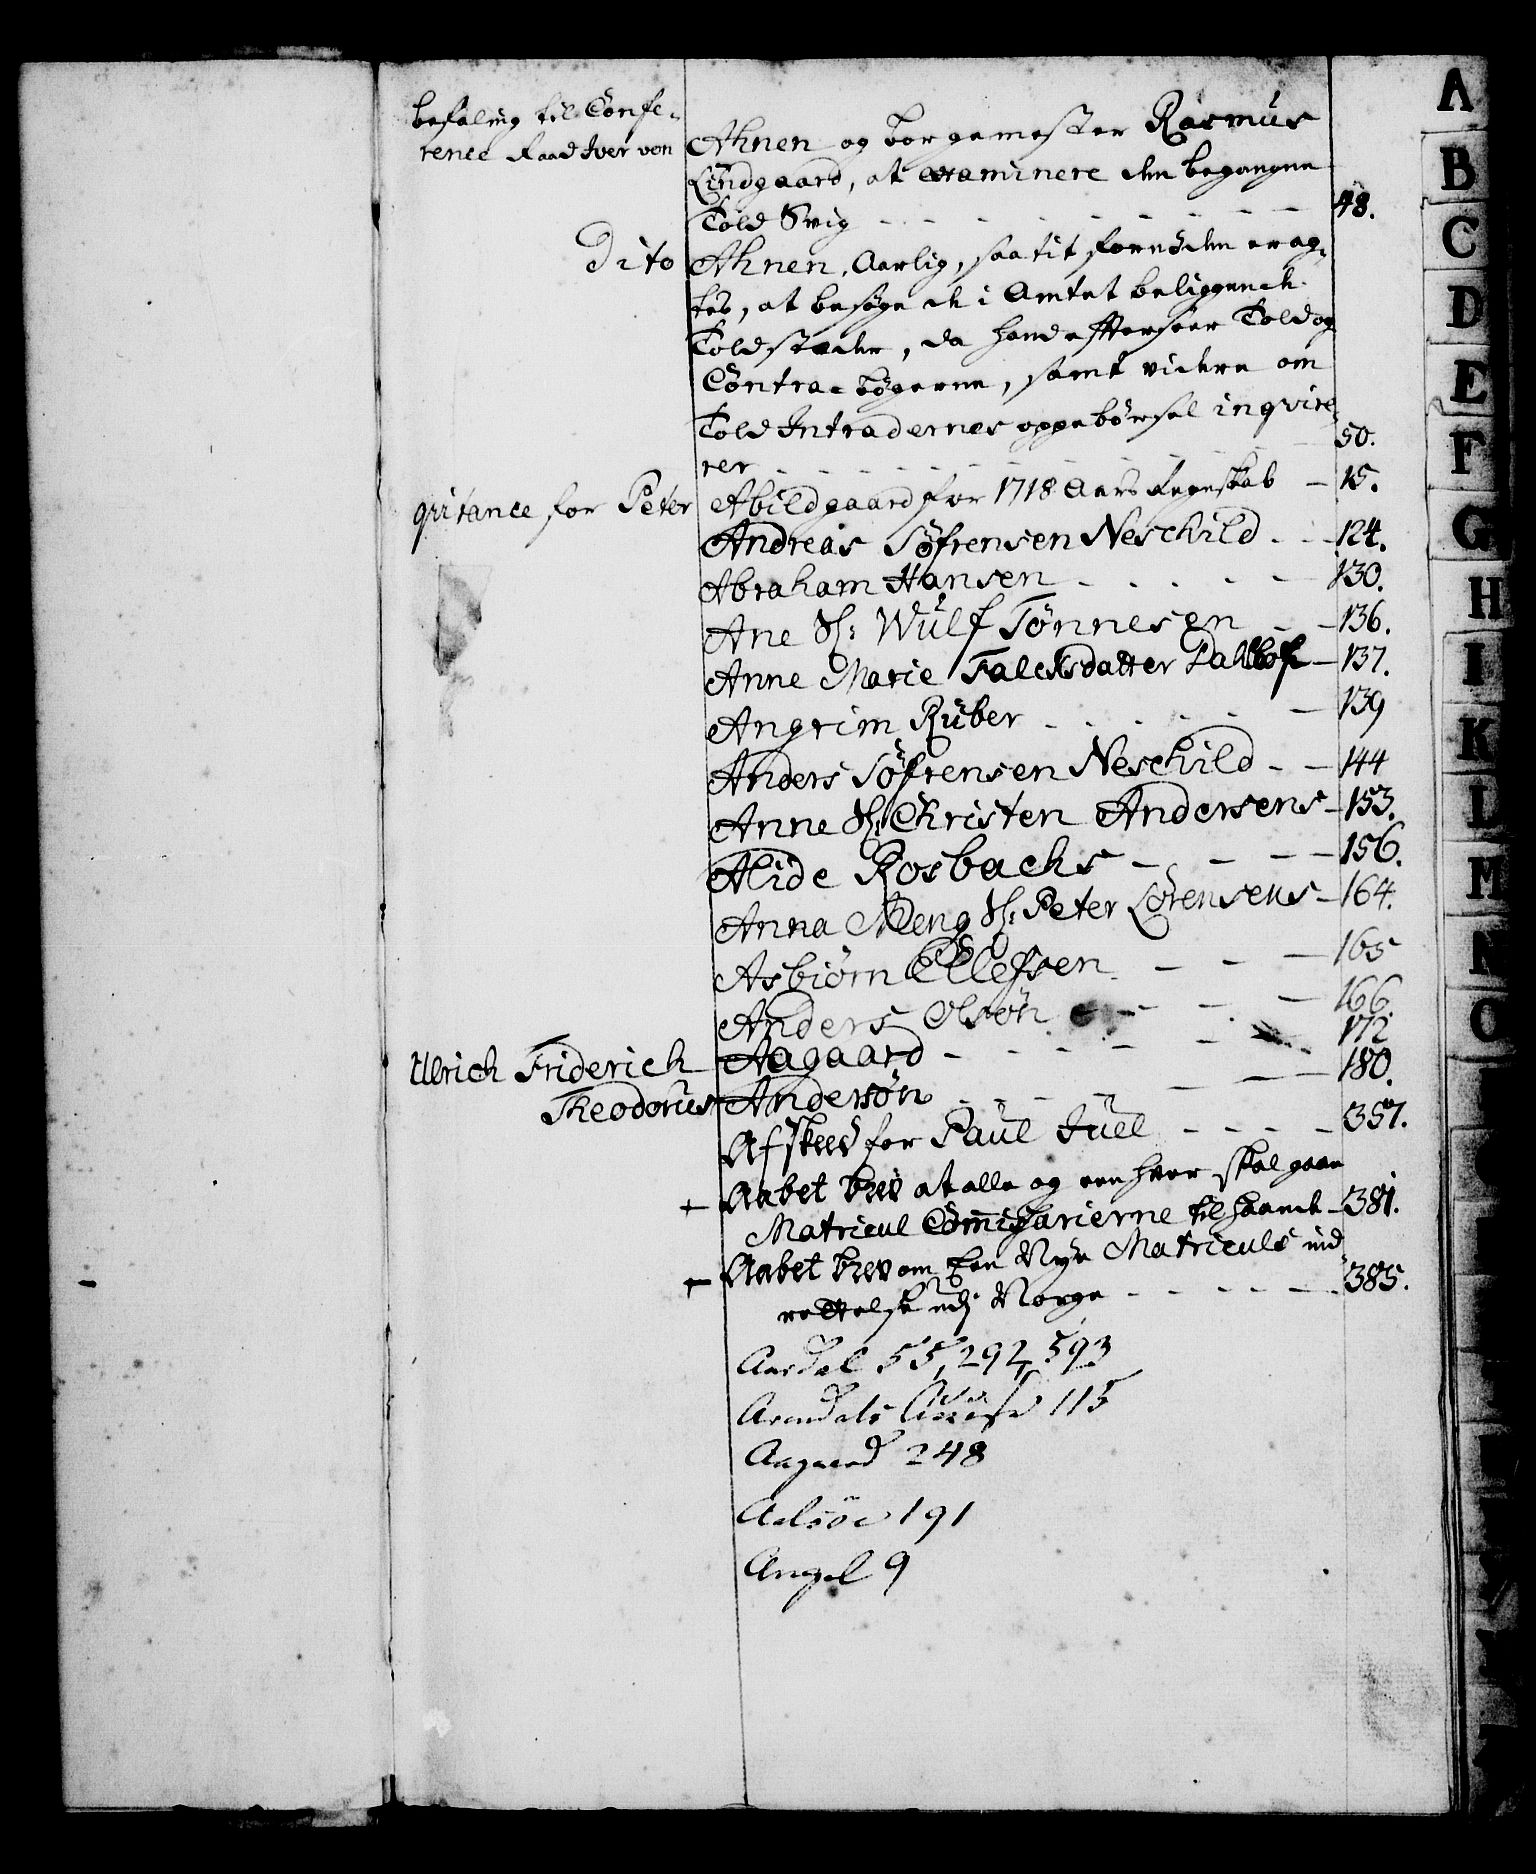 befaling til Confe-
rence Raad Iver von
Ahnen og borgemester Rasmus
Lindgaard, at examinere den begangne
Told Svig - - - - - - - - 48.
Dito Ahnen, Aarlig, saa tit fornøden erag-
tes, at besøge de i Amtet beliggende
Toldstæder, da hand efterseer Told og
Contra-bøgerne, samt videre om
Told Intradernes oppebørsel inqvire-
rer - - - - - - - - 50.
qvitance for Peter Abildgaard for 1718 Aars Regnskab - 15.
Andreas Söfrensen Neschild - - 124.
Abraham Hansen - - - - - 130.
Ane Sl: Wulf Tönnesen - - 136.
Anne Marie Falcksdatter - 137.
Angrim Ruber - - - - - 139
Anders Söfrensen Neschild - - 144
Anne Sl: Christen Andersens - 153.
Alide Rosbachs - - - - 156.
Anna Meng Sl: Peter Lorensens - 164.
Asbiörn Ellefsen - - - 165
Anders Olsön - - - - 166.
172
Ulrich Friderich Aagaard - - - - - -
180.
Theodorus Andersön - - - - -
Afskeed for Paul Juel - - - - 357.
+ Aabet brev at alle og een hver skal gaae
Matricul Commissarierne til haande - 381.
+ Aabet brev om Een Nye Matriculs ind
rettelse udj Norge - - - - - - 385.
Aardal 55, 292, 593
Arendals 115
Aagaard 248
191
Angel 9
A
B
C
D
E
F
G
H
I
K
L
M
N
O